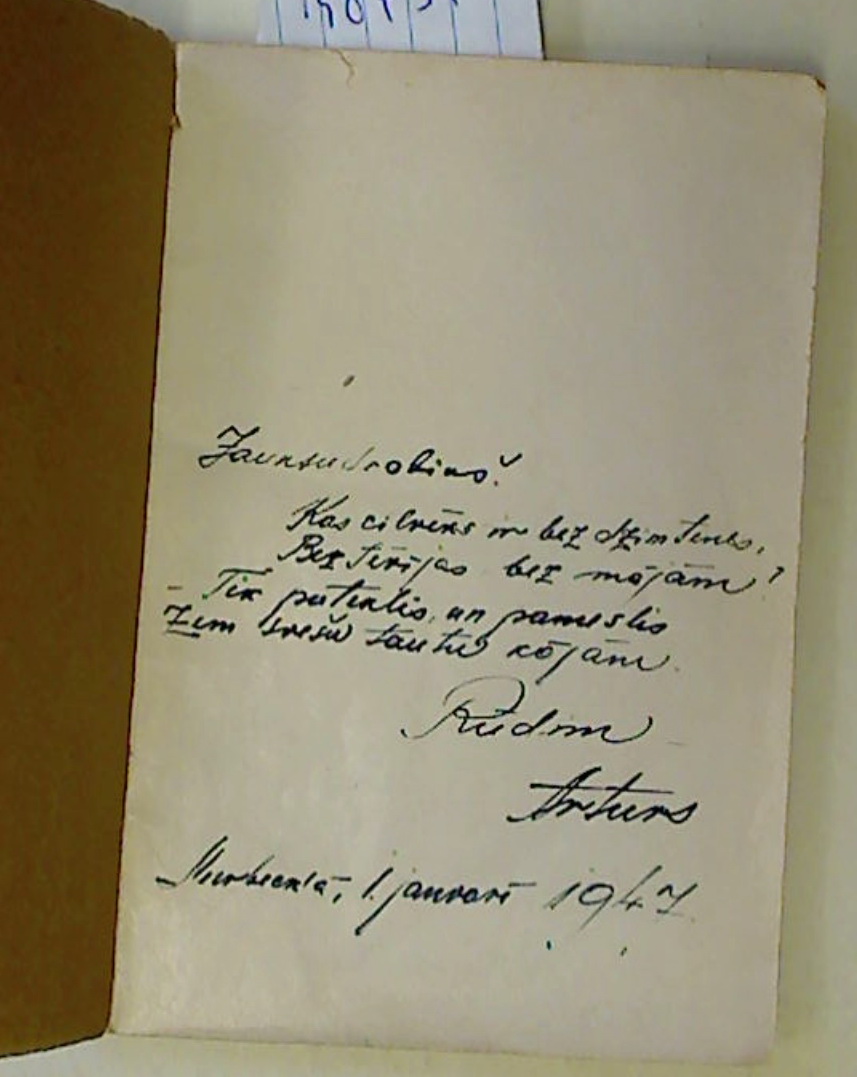 Jaunsudrobiņš.
Kas cilvēks ir bez dzimtenes,
Bez tēvijas bez mājām?
- Tik puteklis, un pameslis
Zem svešu tautu kājām.
Rūdim
Arturs
1. janvarī 1947